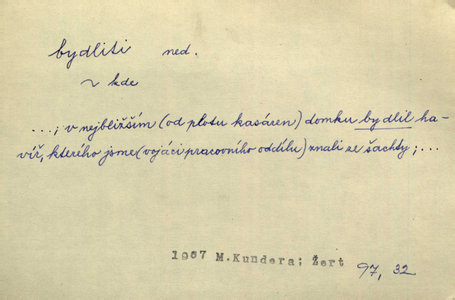 bydliti ned.
~ kde
...; v nejbližším (od plotu kasáren) domku bydlil ha-
víř, kterého jsme (vojáci pracovního oddílu) znali ze šachty; ...
1967 M.Kundera; Žert
97, 32